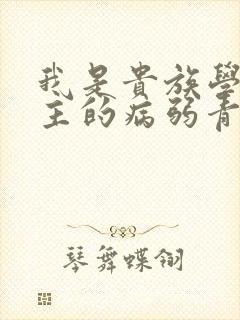 我是貴族學
主的病弱青
琴舞蝶翎